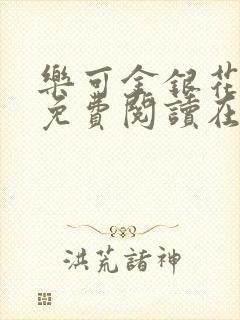 樂可金銀花
免費閱讀在
洪荒諸神